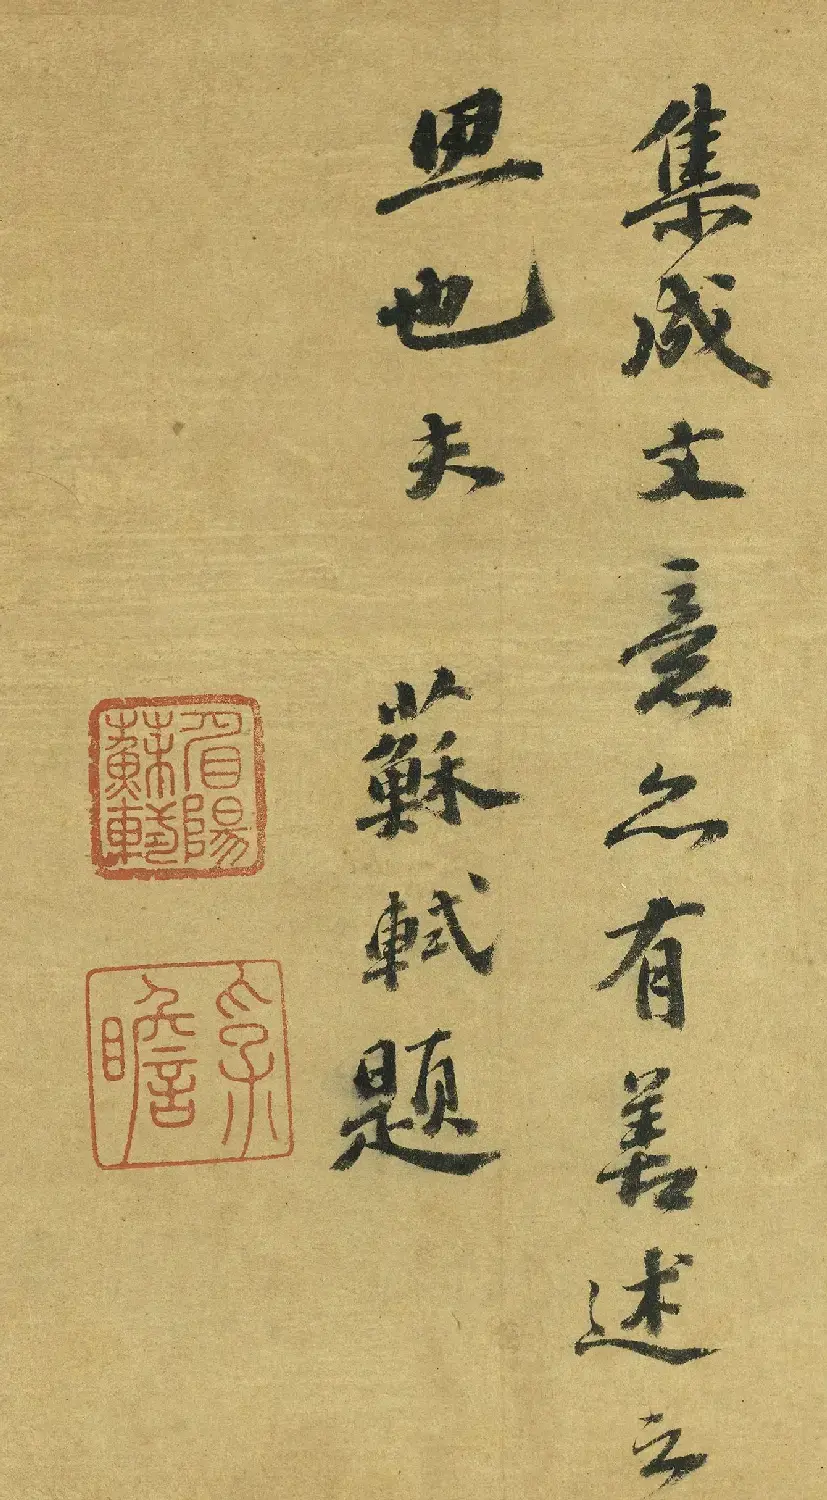 集成文意亦有善述之
思也夫 蘇軾題
眉陽
蘇軾
子瞻